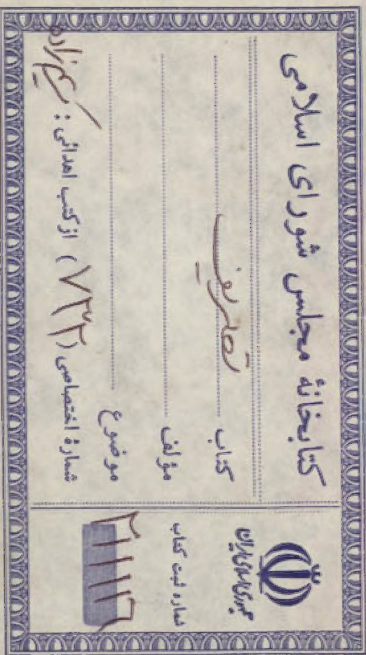 کتابخانهٔ مجلس شورای اسلامی
کتاب تصریف
مؤلف
موضوع
شمارهٔ اختصاصی (۷۳۲) از کتب اهدائی:
جمهوری اسلامی ایران
شماره ثبت کتاب